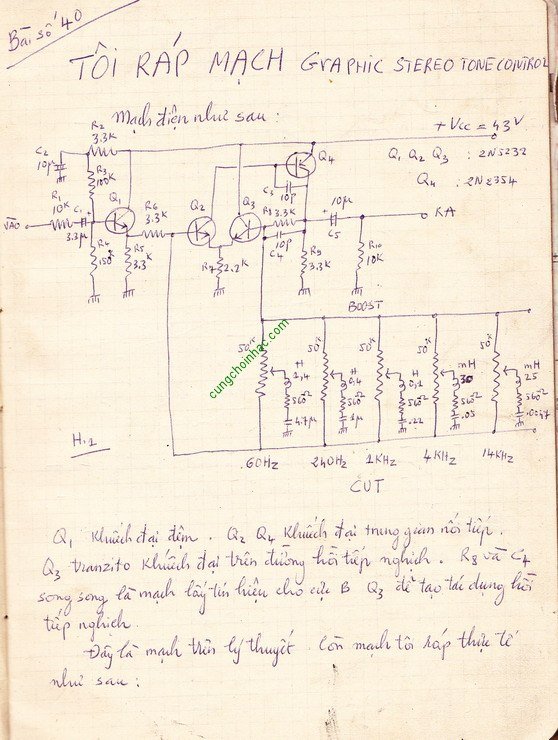 Bài số 40
TÔI RÁP MẠCH GRAPHIC STEREO TONE CONTROL
Mạch điện như sau :
+Vcc = 43V
Q1 Q2 Q3 : 2N5232
Q4 : 2N2354
C2 10µ
R2 3.3K
R3 100K
R1 10K
C1 3.3µ
VÀO
R4 150K
Q1
R5 3.3K
R6 3.3K
Q2
R7 2.2K
Q3
Q4
C3 10p
R8 3.3K
C4 10p
R9 3.3K
10µ C5
R10 10K
RA
BOOST
50K 50K 50K 50K 50K
H 1,4 560Ω 4.7µ
H 0,4 560Ω 1µ
H 0,1 560Ω .22
mH 30 560Ω .05
mH 25 560Ω .0047
H.1
60Hz 240Hz 1KHz 4KHz 14KHz
CUT
cungchoinhac.com
Q1 khuếch đại đệm. Q2 Q4 khuếch đại trung gian nối tiếp.
Q3 tranzito khuếch đại trên đường hồi tiếp nghịch. R8 và C4
song song là mạch lấy tín hiệu cho cực B Q3 để tạo tác dụng hồi
tiếp nghịch.
Đây là mạch trên lý thuyết. Còn mạch tôi ráp thực tế
như sau :